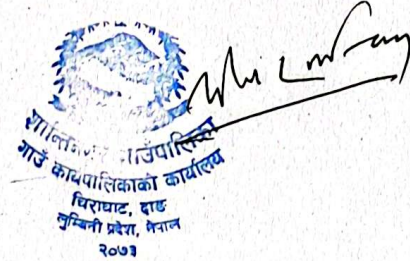 शान्तिनगर गाउँपालिका
गाउँ कार्यपालिकाको कार्यालय
चिराघाट, दाङ
लुम्बिनी प्रदेश, नेपाल
२०७३